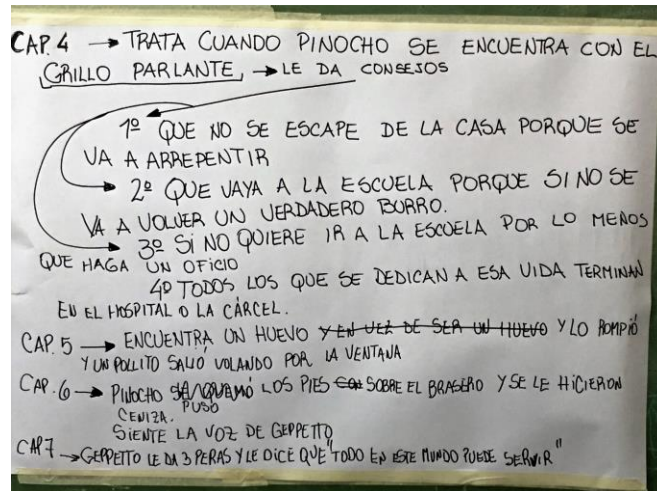 CAP. 4 → TRATA CUANDO PINOCHO SE ENCUENTRA CON EL
GRILLO PARLANTE, → LE DA CONSEJOS
1º QUE NO SE ESCAPE DE LA CASA PORQUE SE
VA A ARREPENTIR
2º QUE VAYA A LA ESCUELA PORQUE SI NO SE
VA A VOLVER UN VERDADERO BURRO.
3º SI NO QUIERE IR A LA ESCUELA POR LO MENOS
QUE HAGA UN OFICIO
4º TODOS LOS QUE SE DEDICAN A ESA VIDA TERMINAN
EN EL HOSPITAL O LA CÁRCEL.
CAP. 5 → ENCUENTRA UN HUEVO Y EN VEZ DE SER UN HUEVO Y LO ROMPIÓ
Y UN POLLITO SALIÓ VOLANDO POR LA VENTANA
CAP. 6 → PINOCHO PUSO LOS PIES CON SOBRE EL BRASERO Y SE LE HICIERON
CENIZA.
SIENTE LA VOZ DE GEPPETTO
CAP 7 → GEPPETTO LE DA 3 PERAS Y LE DICE QUE "TODO EN ESTE MUNDO PUEDE SERVIR"